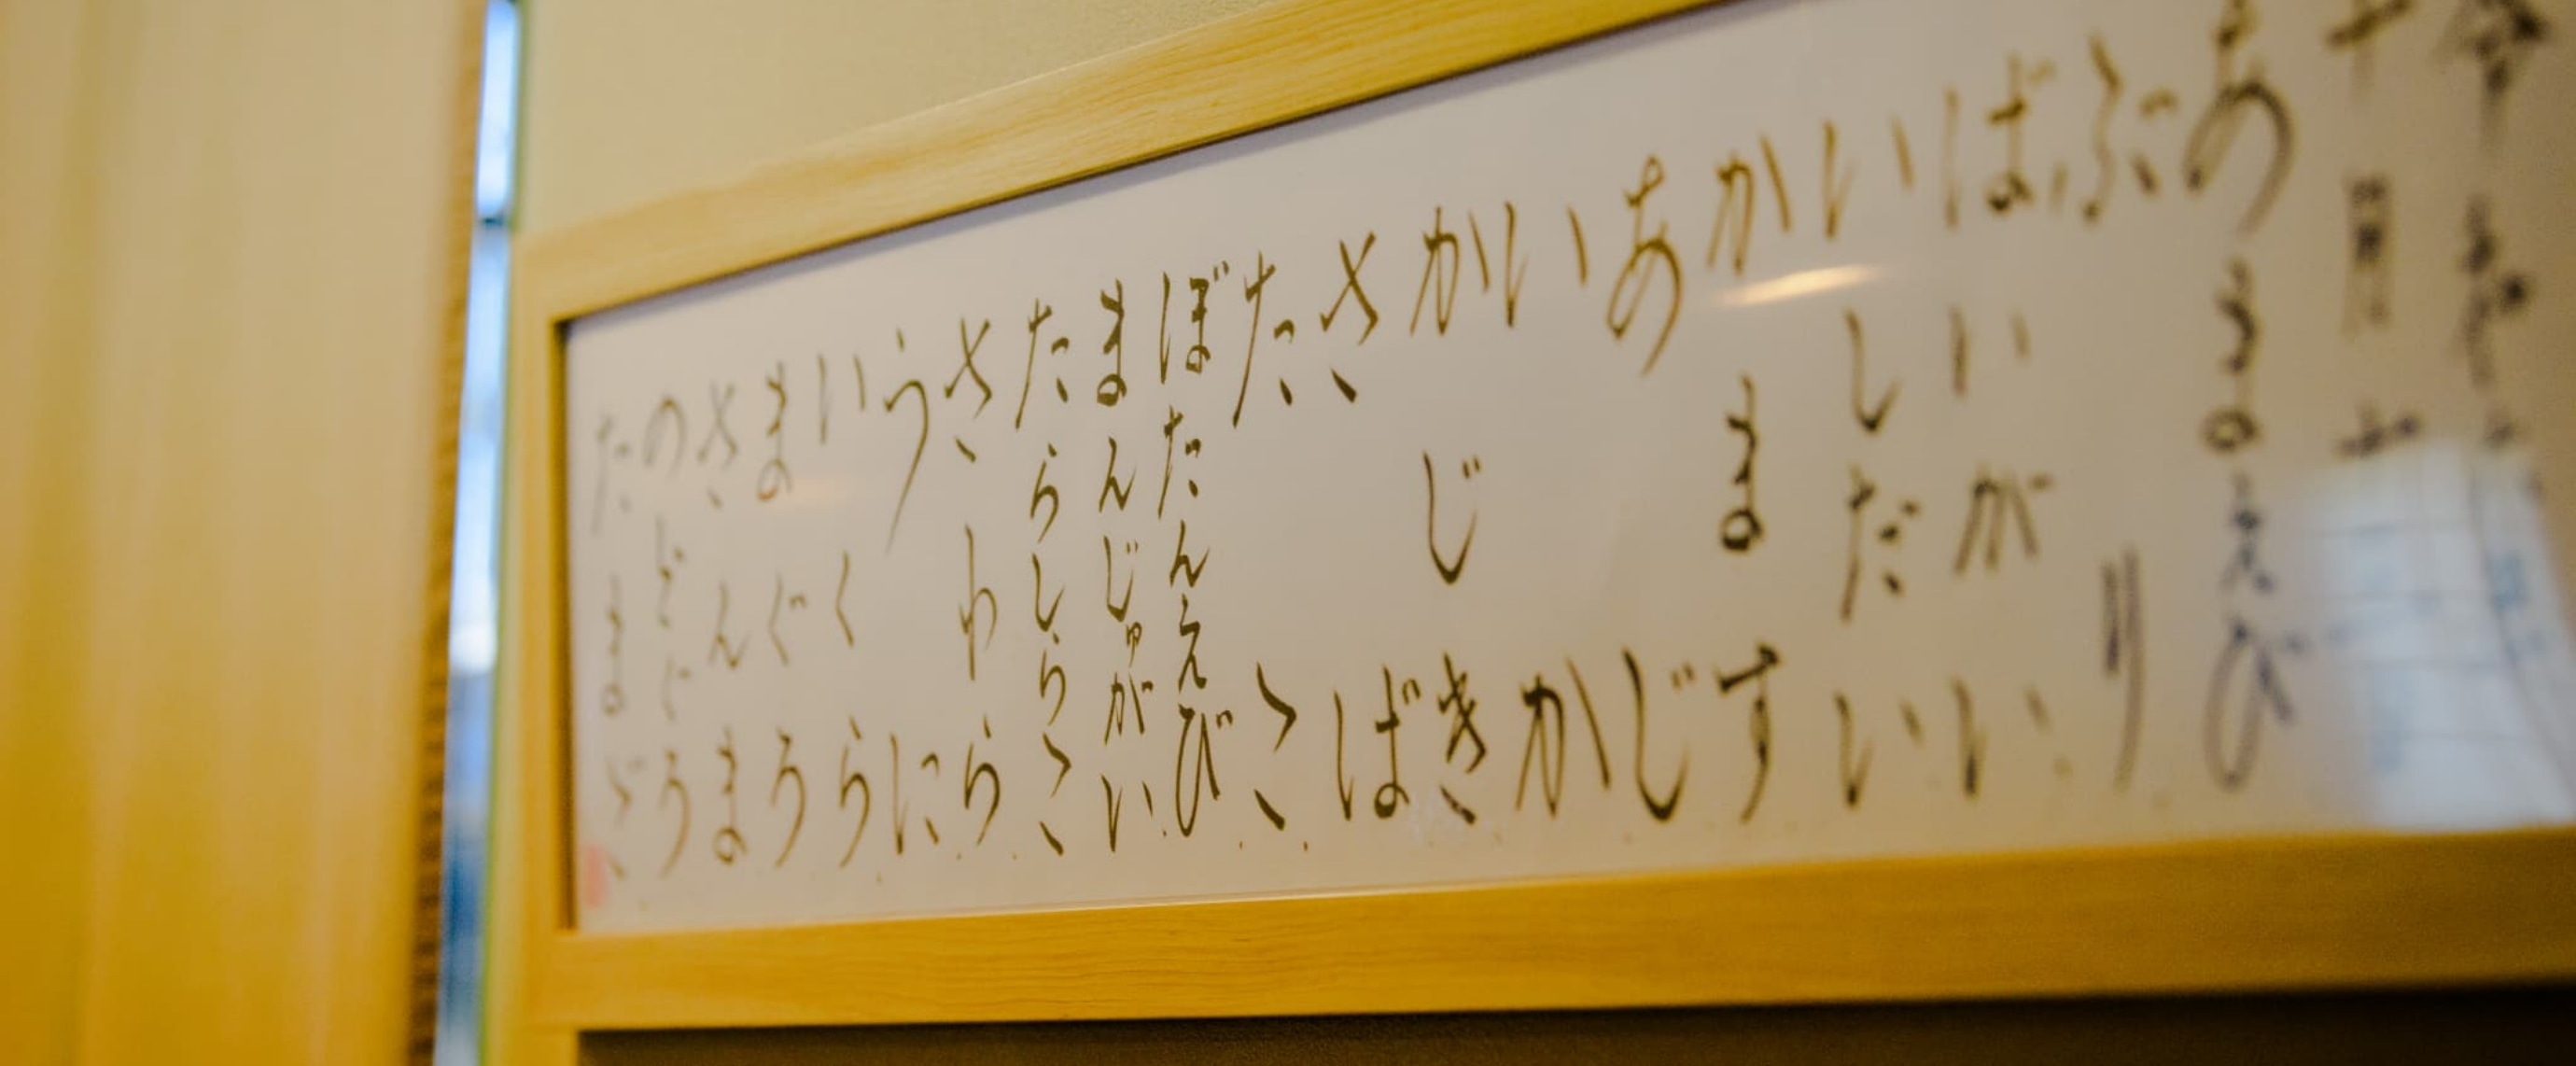 あまえび
ぶり
ばいがい
いしだい
かます
あじ
いか
かじき
さば
たこ
ぼたんえび
まんじゅがい
たらしらこ
さわら
うに
いくら
まぐろ
さんま
のどぐろ
たまご